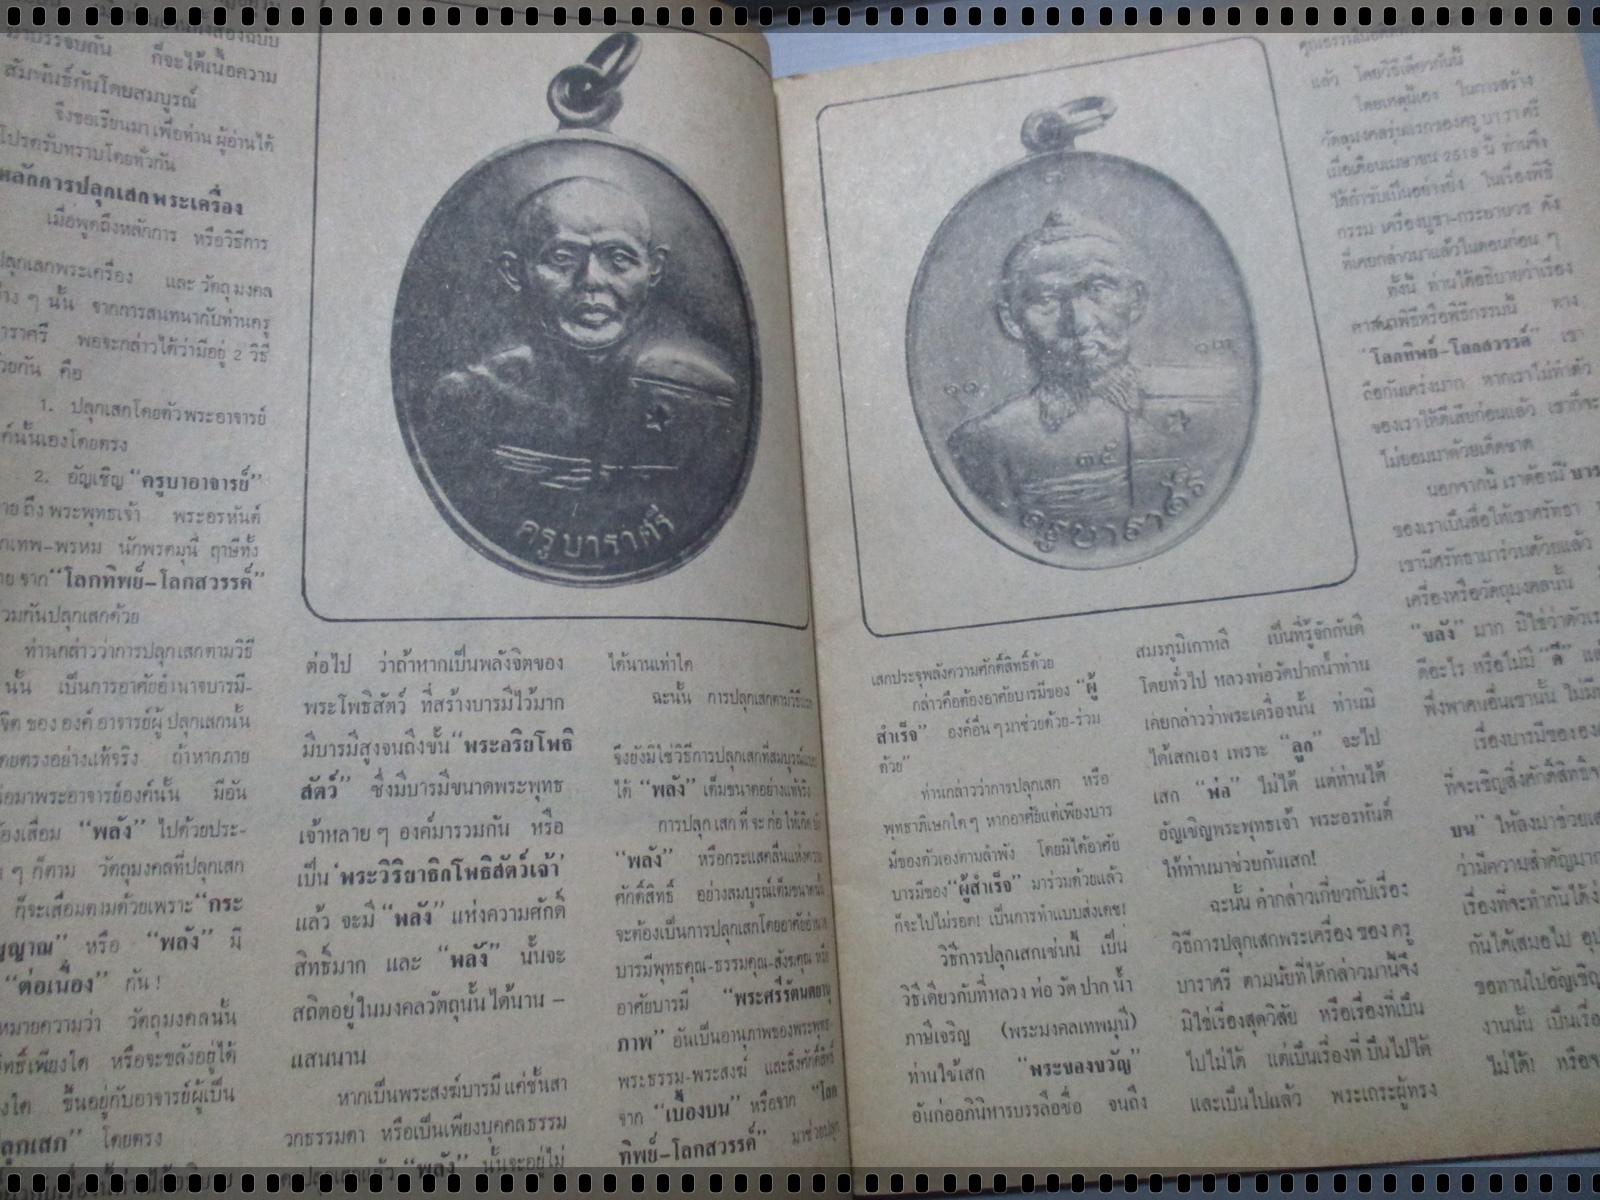 บรรจบกัน ก็จะได้เนื้อความ
สัมพันธ์กันโดยสมบูรณ์
จึงขอเรียนมาเพื่อท่านผู้อ่านได้
โปรดรับทราบโดยทั่วกัน
หลักการปลุกเสกพระเครื่อง
เมื่อพูดถึงหลักการ หรือวิธีการ
ปลุกเสกพระเครื่อง และวัตถุมงคล
ต่าง ๆ นั้น จากการสนทนากับท่านครู
บาราศรี พอจะกล่าวได้ว่ามีอยู่ 2 วิธี
ด้วยกัน คือ
1. ปลุกเสกโดยตัวพระอาจารย์
องค์นั้นเองโดยตรง
2. อัญเชิญ “ครูบาอาจารย์”
หมายถึง พระพุทธเจ้า พระอรหันต์
เทพ-พรหม นักพรตมุนี ฤาษีทั้ง
จาก “โลกทิพย์–โลกสวรรค์”
ร่วมกันปลุกเสกด้วย
ท่านกล่าวว่าการปลุกเสกตามวิธี
นั้น เป็นการอาศัยอำนาจบารมี-
จิต ของ องค์ อาจารย์ผู้ ปลุกเสกนั้น
โดยตรงอย่างแท้จริง ถ้าหากภาย
ต่อมาพระอาจารย์องค์นั้น มีอัน
ต้องเสื่อม “พลัง” ไปด้วยประ-
ๆ ก็ตาม วัตถุมงคลที่ปลุกเสก
ก็จะเสื่อมตามด้วยเพราะ “กระ
“พลัง” มี
“ต่อเนื่อง” กัน!
หมายความว่า วัตถุมงคลนั้น
เพียงใด หรือจะขลังอยู่ได้
ขึ้นอยู่กับอาจารย์ผู้เป็น
ปลุกเสก” โดยตรง
ครูบาราศรี
ต่อไป ว่าถ้าหากเป็นพลังจิตของ
พระโพธิสัตว์ ที่สร้างบารมีไว้มาก
มีบารมีสูงจนถึงขั้น “พระอริยโพธิ
สัตว์” ซึ่งมีบารมีขนาดพระพุทธ
เจ้าหลาย ๆ องค์มารวมกัน หรือ
เป็น ‘พระวิริยาธิกโพธิสัตว์เจ้า’
แล้ว จะมี “พลัง” แห่งความศักดิ์
สิทธิ์มาก และ “พลัง” นั้นจะ
สถิตอยู่ในมงคลวัตถุนั้น ได้นาน –
แสนนาน
หากเป็นพระสงฆ์บารมี แค่ชั้นสา
วกธรรมดา หรือเป็นเพียงบุคคลธรรม
ดาปลุกเสกแล้ว “พลัง” นั้นจะอยู่ไม่
ได้นานเท่าใด
ฉะนั้น การปลุกเสกตามวิธีแรก
จึงยังมิใช่วิธีการปลุกเสกที่สมบูรณ์
ได้ “พลัง” เต็มขนาดอย่างแท้จริง
การปลุก เสก ที่ จะ ก่อ ให้เกิด
“พลัง” หรือกระแสคลื่นแห่งความ
ศักดิ์สิทธิ์ อย่างสมบูรณ์เต็มขนาดนั้น
จะต้องเป็นการปลุกเสกโดยอาศัยอำนาจ
บารมีพุทธคุณ-ธรรมคุณ-สังฆคุณ หรือ
อาศัยบารมี “พระศรีรัตนตยานุ
ภาพ” อันเป็นอานุภาพของพระพุทธ-
พระธรรม-พระสงฆ์ และสิ่งศักดิ์สิทธิ์
จาก “เบื้องบน” หรือจาก “โลก
ทิพย์–โลกสวรรค์” มาช่วยปลุก
ครูบาราศรี
๑๐
๑๓
๓๕
เสกประจุพลังความศักดิ์สิทธิ์ด้วย
กล่าวคือต้องอาศัยบารมีของ “ผู้
สำเร็จ” องค์อื่น ๆ มาช่วยด้วย-ร่วม
ด้วย”
ท่านกล่าวว่าการปลุกเสก หรือ
พุทธาภิเษกใด ๆ หากอาศัยแต่เพียงบาร
มีของตัวเองตามลำพัง โดยมิได้อาศัย
บารมีของ “ผู้สำเร็จ” มาร่วมด้วยแล้ว
ก็จะไปไม่รอด! เป็นการทำแบบส่งเดช!
วิธีการปลุกเสกเช่นนี้ เป็น
วิธีเดียวกับที่หลวง พ่อ วัด ปาก น้ำ
ภาษีเจริญ (พระมงคลเทพมุนี)
ท่านใช้เสก “พระของขวัญ”
อันก่ออภินิหารบรรลือชื่อ จนถึง
สมรภูมิเกาหลี เป็นที่รู้จักกันดี
โดยทั่วไป หลวงพ่อวัดปากน้ำท่าน
เคยกล่าวว่าพระเครื่องนั้น ท่านมิ
ได้เสกเอง เพราะ “ลูก” จะไป
เสก “พ่อ” ไม่ได้ แต่ท่านได้
อัญเชิญพระพุทธเจ้า พระอรหันต์
ให้ท่านมาช่วยกันเสก!
ฉะนั้น คำกล่าวเกี่ยวกับเรื่อง
วิธีการปลุกเสกพระเครื่อง ของ ครู
บาราศรี ตามนัยที่ได้กล่าวมานี้จึง
มิใช่เรื่องสุดวิสัย หรือเรื่องที่เป็น
ไปไม่ได้ แต่เป็นเรื่องที่ เป็นไปได้
และเป็นไปแล้ว พระเถระผู้ทรง
แล้ว โดยวิธีเดียวกันนี้
โดยเหตุนี้เอง ในการสร้าง
วัตถุมงคลรุ่นแรกของครู บา รา ศรี
เมื่อเดือนเมษายน 2518 นี้ ท่านจึง
ได้กำชับเป็นอย่างยิ่ง ในเรื่องพิธี
กรรม เครื่องบูชา-กระยาบวช ดัง
ที่เคยกล่าวมาแล้วในตอนก่อน ๆ
ทั้งนี้ ท่านได้อธิบายว่าเรื่อง
ศาสนพิธีหรือพิธีกรรมนี้ ทาง
“โลกทิพย์–โลกสวรรค์” เขา
ถือกันเคร่งมาก หากเราไม่ทำตัว
ของเราให้ดีเสียก่อนแล้ว เขาก็จะ
ไม่ยอมมาด้วยเด็ดขาด
นอกจากนี้ เราต้องมี บาร
ของเราเป็นสื่อให้เขาศรัทธา
เขามีศรัทธามาร่วมด้วยแล้ว
เครื่องหรือวัตถุมงคลนั้น
“ขลัง” มาก มิใช่ว่าตัวเรา
ดีอะไร หรือไม่มี “ดี”
พึ่งพาคนอื่นเขานั้น ไม่มี
เรื่องบารมีขององค์
ที่จะเชิญสิ่งศักดิ์สิทธิ์จาก
บน” ให้ลงมาช่วยเสก
ว่ามีความสำคัญมาก
เรื่องที่จะทำกันได้ง่าย
กันได้เสมอไป
ขอทานไปอัญเชิญ
งานนั้น เป็นเรื่อง
ไม่ได้! หรือจะ